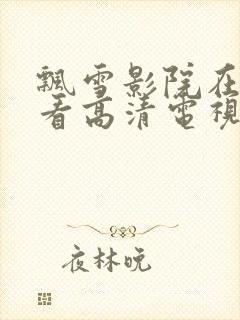 飄雪影院在
看高清電視
夜林晚